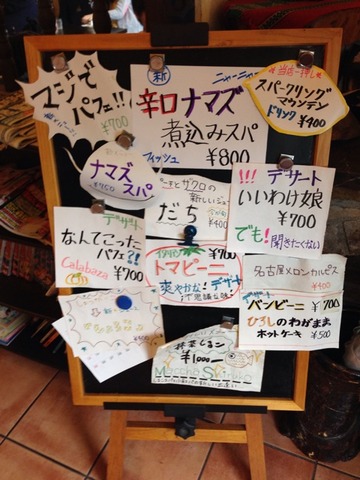 マジで
パフェ!!
¥700
新
ニャーニャー
辛口ナマズ
煮込みスパ
フィッシュ ¥800
当店一押し
スパークリング
マウンテン
ドリンク ¥400
ナマズ
スパ
¥750
ザクロの
新しいジュ
だち
¥400
!!! デザート
いいわけ娘
¥700
でも! 聞きたくない
デザート
なんてこった
パフェ?!
Calabaza ¥700
イタリアン ¥700
トマピーニ
爽やかな! デザート
不思議な味!
名古屋メロンカルピス
¥400
デザート
バンビーニ ¥700
ひろしのわがまま
ホットケーキ ¥500
¥400
抹茶しるこ
¥1000